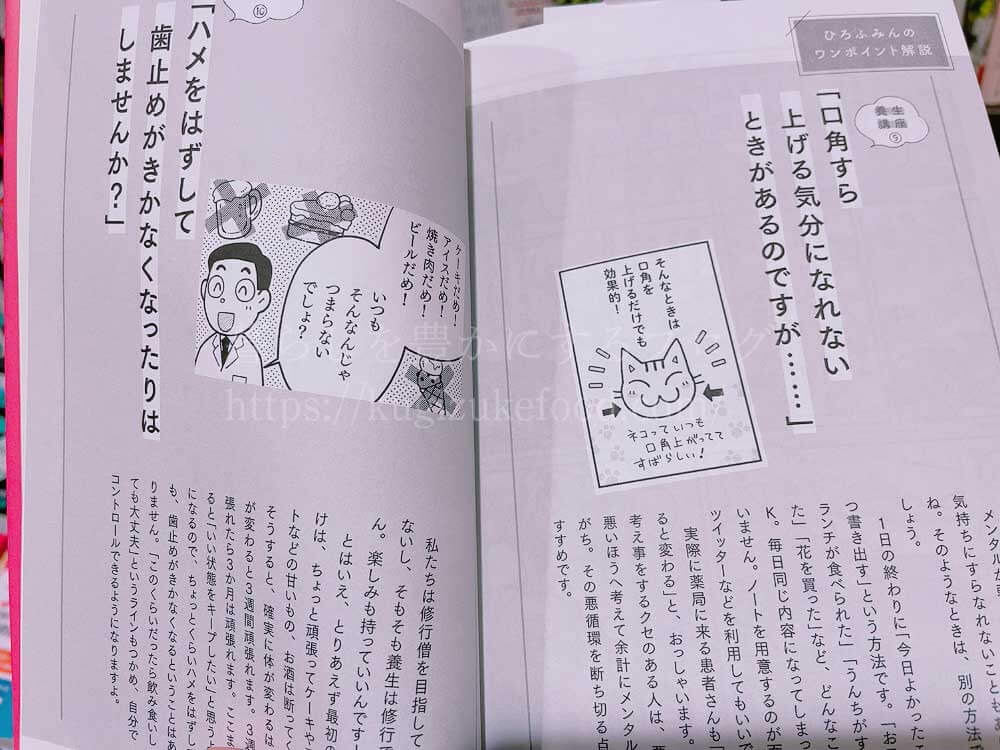 ひろふみんの
ワンポイント解説
養生
講座
⑨
「口角すら
上げる気分になれない
ときがあるのですが……」
そんなときは
口角を
上げるだけでも
効果的！
ネコっていつも
口角上がってて
すばらしい！
メンタルが
気持ちにすらなれないことも
ね。そのようなときは、別の方法で
しょう。
1日の終わりに「今日よかった
つ書き出す」という方法です。「お
ランチが食べられた」「うんちがす
た」「花を買った」など、どんなこ
K。毎日同じ内容になってしまっ
いません。ノートを用意するのが面
ツイッターなどを利用してもいいで
実際に薬局に来る患者さんも「
ると変わる」と、おっしゃいます。
考え事をするクセのある人は、
悪いほうへ考えて余計にメンタル
がち。その悪循環を断ち切る点
すすめです。
⑩
「ハメをはずして
歯止めがきかなくなったりは
しませんか？」
ケーキだめ！
アイスだめ！
焼き肉だめ！
ビールだめ！
いつも
そんなんじゃ
つまらない
でしょ？
私たちは修行僧を目指して
ないし、そもそも養生は修行で
ん。楽しみも持っていいんです
とはいえ、とりあえず最初の
けは、ちょっと頑張ってケーキや
トなどの甘いもの、お酒は断って
そうすると、確実に体が変わるは
が変わると3週間頑張れます。3週
張れたら3か月は頑張れます。ここま
ると「いい状態をキープしたい」と思う
になるので、ちょっとくらいハメをはずし
も、歯止めがきかなくなるということはあ
りません。「このくらいだったら飲み食いし
ても大丈夫」というラインもつかめ、自分で
コントロールできるようになりますよ。
暮らしを豊かにするブログ